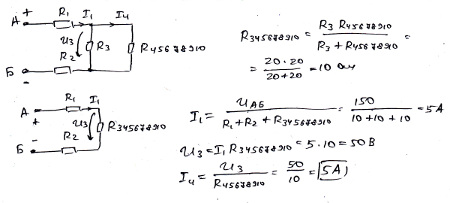 A + R₁ I₁ I₄
U₃ R₃ R₄₅₆₇₈₉₁₀
Б - R₂
R₃₄₅₆₇₈₉₁₀ = R₃ R₄₅₆₇₈₉₁₀ / R₃ + R₄₅₆₇₈₉₁₀ =
= 20 · 20 / 20 + 20 = 10 Ом
A + R₁ I₁
U₃ R₃₄₅₆₇₈₉₁₀
Б - R₂
I₁ = U_АБ / R₁ + R₂ + R₃₄₅₆₇₈₉₁₀ = 150 / 10 + 10 + 10 = 5A
U₃ = I₁ R₃₄₅₆₇₈₉₁₀ = 5 · 10 = 50 В
I₄ = U₃ / R₄₅₆₇₈₉₁₀ = 50 / 10 = 5A